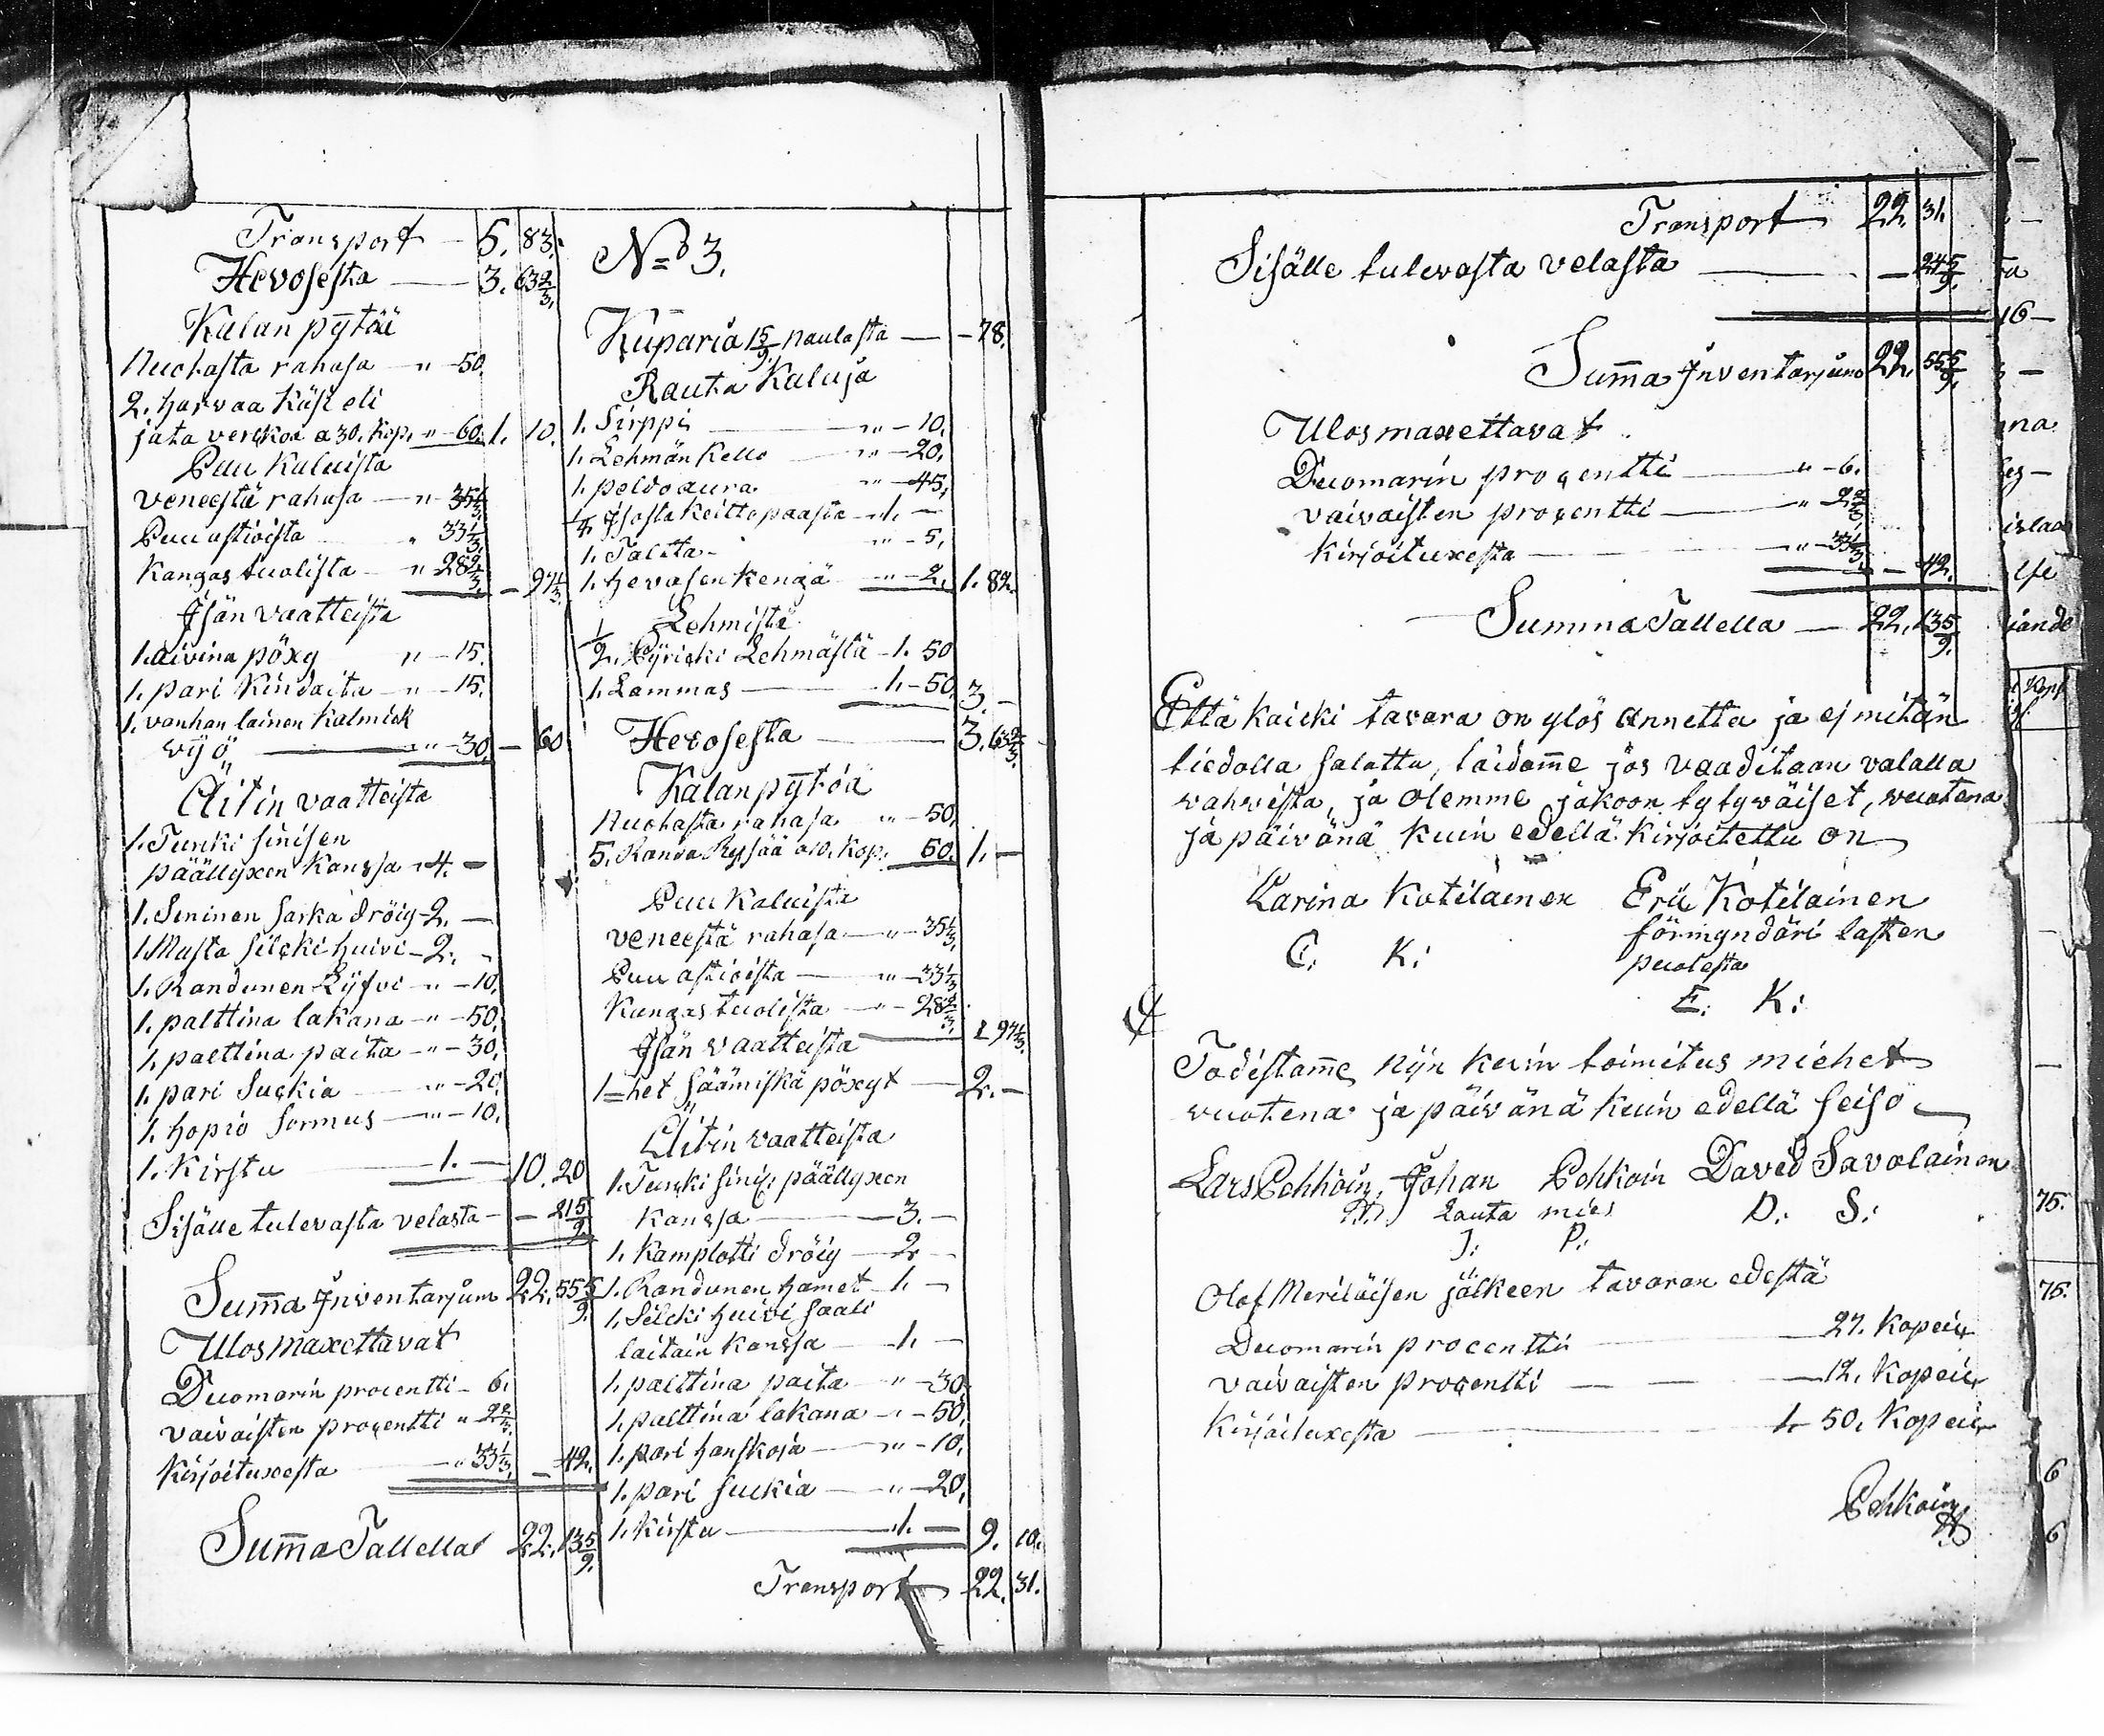 Transport — 5. 83.
Hevosesta — 3. 63 2/3.
Kalan pytöä
Nuotasta rahasa — " — 50.
2. harvaa Käst eli
jata verckoa a 30. Kop. " — 60. 1. 10.
Puu Kaluista
veneestä rahasa — " — 35 1/3.
Puu astioista " 33 1/3.
Kangas tuolista — " 28 2/3. — 97 1/3.
Isän vaatteista
1. aivina pöxy " — 15.
1. pari Kindaita — " — 15.
1. vanhan lainen Kalmick
wyö — " — 30. — 60
Äitin vaatteista
1. Turcki sinisen
päällyxen Kanssa — 4. —
1. Sininen sarka dröig — 2. —
1. Musta silcki huivi — 2. —
1. Randunen Lijfvi — " — 10.
1. palttina lakana — " — 50.
1. palttina paita — " — 30.
1. pari Suckia — " — 20.
1. hopio sormus — " — 10.
1. Kirstu — 1. — 10. 20
Sisälle tulevasta velasta — — 215/9.
Suma Inventarjum 22. 55 5/9.
Ulosmaxettavat
Duomarin procentti — 6.
vaivaisten procentti " 2 2/3.
Kirjoituxesta — " 33 1/3. — 42.
Suma Tallella 22. 13 5/9.
No 3.
Kuparia 15/9. naulasta — — 78.
Rauta Kaluja
1. Sirppi — " — 10.
1. Lehmän Kello — " — 20.
1. peldo aura " — 45.
Isosta Keittopaasta — 1. —
1. Taltta — " — 5.
1. hevosen Kengä — " — 2. 1. 82.
Lehmistä
1/2. Pyricki Lehmästä — 1. 50
1. Lammas — 1. — 50. 3. —
Hevosesta — 3. 63 2/3.
Kalan pytöä
Nuotasta rahasa " — 50.
5. Randa Rysää a 10. Kop. 50. 1. —
Puu Kaluista
veneestä rahasa — " — 35 1/3.
Puu astioista — " — 33 1/3
Kangas tuolista — " — 28 2/3.
Isän vaatteista — 97 1/3.
1=het säämiskä pöxyt — 2. —
Äitin vaatteista
1. Turcki sinis: päällyxen
Kanssa — 3. —
1. Kamplotti dröig — 2. —
1. Randunen hamet — 1. —
1. Silcki huivi saali
laitain Kanssa — 1. —
1. palttina paita — " — 30.
1. palttina lakana — " — 50.
1. pari hanskoja — " — 10.
1. pari suckia — " — 20.
1. Kirstu — 1. — 9. 10.
Transport 22. 31.
Transport 22. 31.
Sisälle tulevasta velasta — — 24 5/9.
Suma Inventarjum 22. 55 5/9.
Ulosmaxettavat
Duomarin procentti — " — 6.
vaivaisten procentti — " 2 2/3
Kirjoituxesta — " — 33 1/3. — 42.
Summa Tallella — 22. 13 5/9.
Että kaicki tavara on ylös annettu ja ej mitän
tiedolla salattu, taidame jos vaaditaan valalla
wahvista, ja olemme jakoon tytywäiset, wuotena
ja päivänä kuin edellä kirjoitettu on
Karina Kotilainen Erik Kotilainen
förmyndäri lasten
C. K: puolesta
E. K:
Todistame nijn kuin toimitus miehet
wuotena ja päivänä kuin edellä seiso
Lars Pehkoin, Johan Pehkoin David Savolainen
Lauta mies D. S.:
J: P:
Olof Meriläisen jälkeen tavaran edestä
Duomarin procentti — 27. Kopeix
vaivaisten procentti — — — 12. Kopeix
Kirjoituxesta — 1. 50. Kopeix
Pehkoin